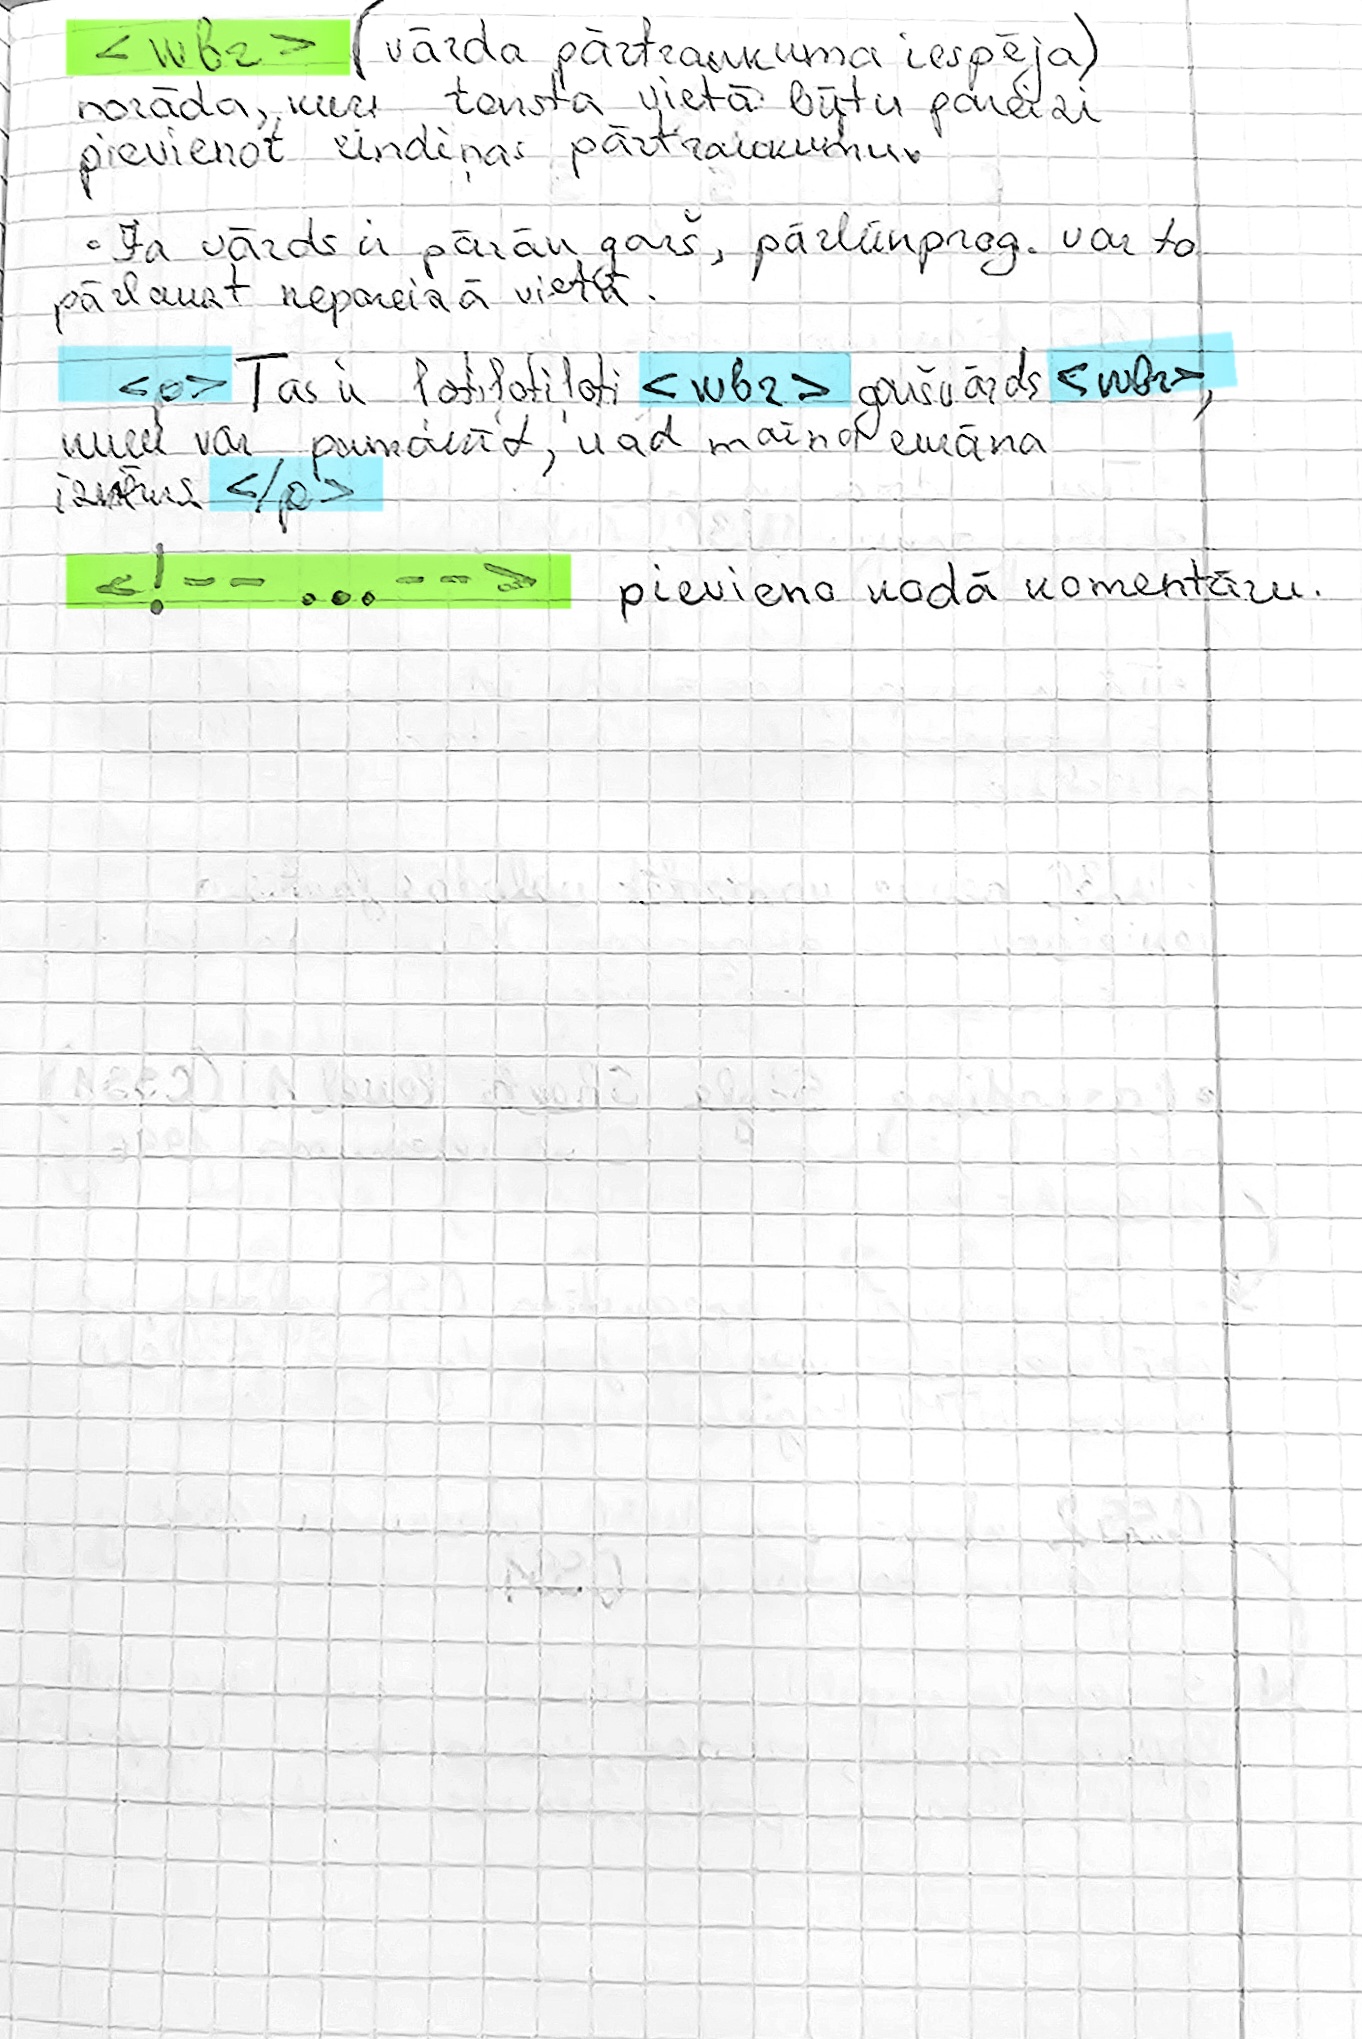 <wbr> (vārda pārtraukuma iespēja)
norāda, kur teksta vietā būtu pareizi
pievienot rindiņas pārtraukumu.
• Ja vārds ir pārāk garš, pārlūkprog. var to
pārlauzt nepareizā vietā.
<p> Tas ir ļotiļotiļoti <wbr> garšvārds <wbr>,
kuru var pamanīt, kad maina ekrāna
izmērus </p>
<!-- ... --> pievieno kodā komentāru.